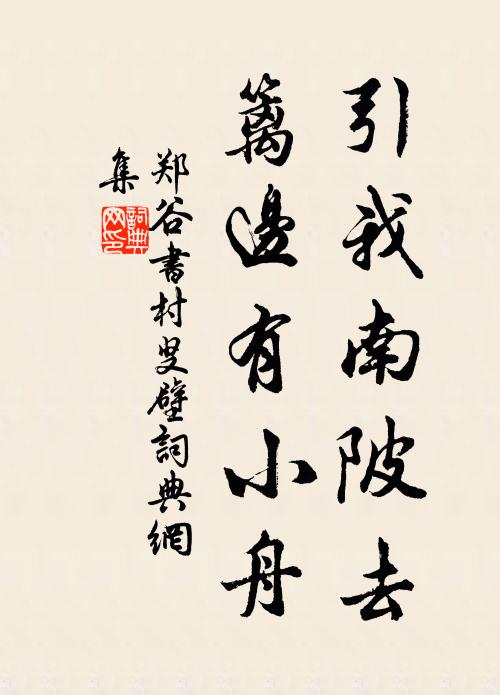 引我南陂去
篱邊有小舟
郑谷書村叟壁詞典網
集
詞典
网印